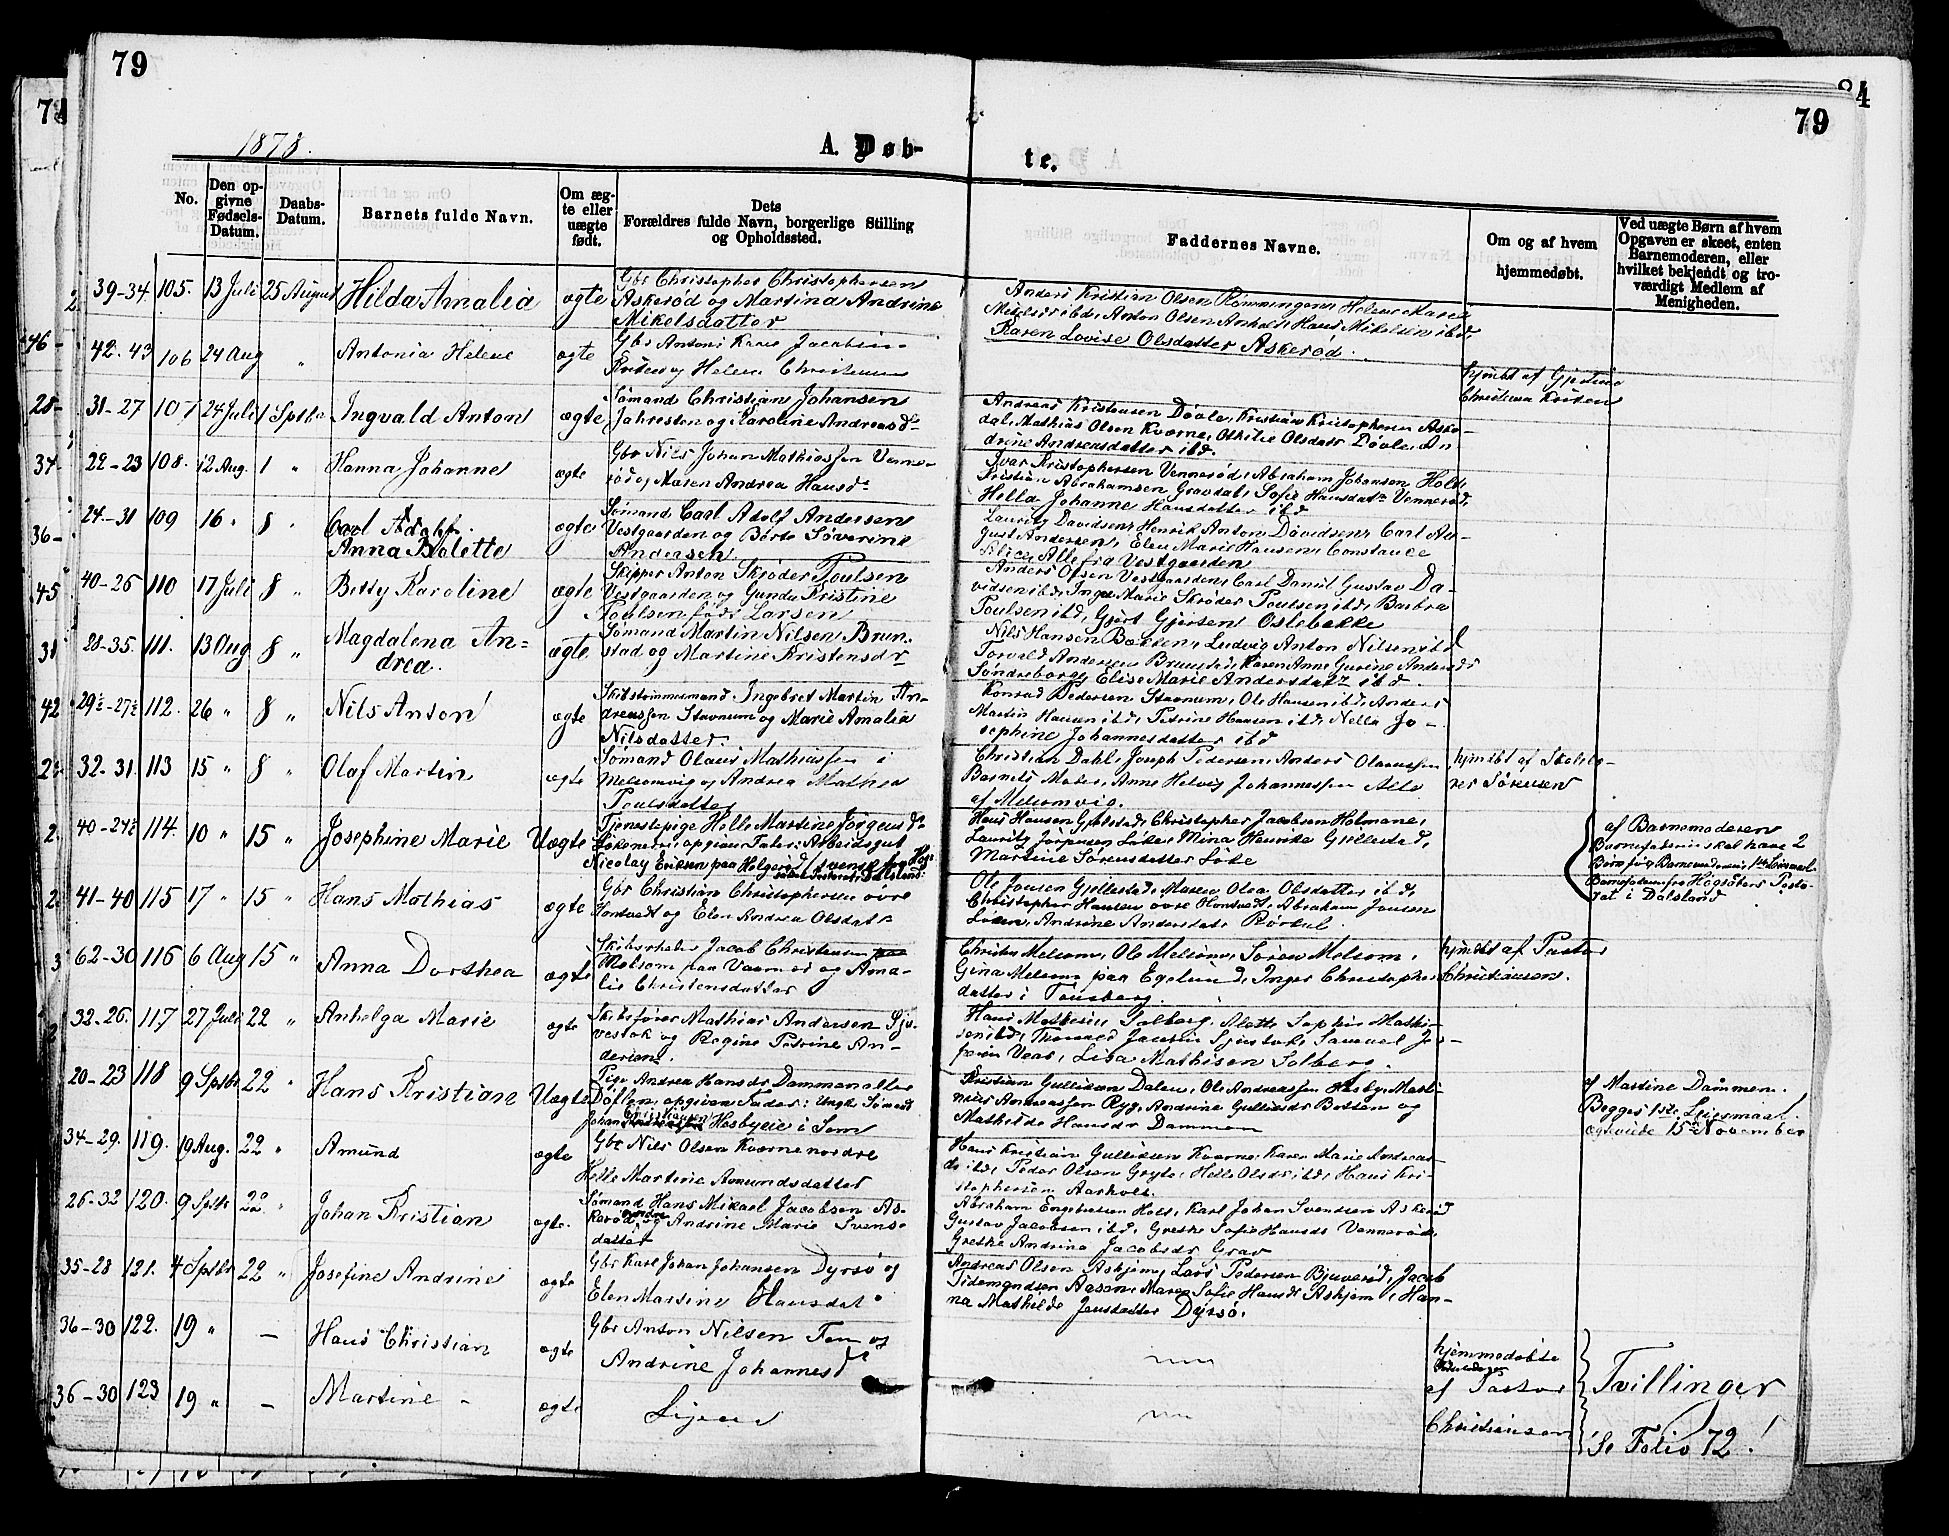 79
79
84
1878.
A. Døb-
te.
No.
Den opgivne Fødsels-Datum.
Daabs-Datum.
Barnets fulde Navn.
Om ægte eller uægte født.
Dets Forældres fulde Navn, borgerlige Stilling og Opholdssted.
Faddernes Navne.
Om og af hvem hjemmedøbt.
Ved uægte Børn af hvem Opgaven er skeet, enten Barnemoderen, eller hvilket bekjendt og troværdigt Medlem af Menigheden.
39-34 105. 13 Juli 25 August Hilda Amalia ægte
Gbr Christopher Christophersen
Askerød og Martina Andrine
Mikelsdatter
Anders Kristian Olsen
Anton Olsen Anholt, Hans Mikelsen ibd,
Karen Lovise Olsdatter Askerød.
42-43 106 24 Aug " Antonia Helene ægte
Gbr Antoni Jacobsen
og Helene Christensen
hjmdbt af
31-27 107 24 Juli 1 Septbr Ingvald Anton ægte
Sømand Christian Johansen
Jahresten og Karoline Andreasdr
Andreas Kristensen Døvle, Kristian Kristophersen Aske-
dal, Mathias Olsen Kværne, Othilie Olsdatr Døvle, An
drine Andreasdatter ibd.
22-23 108. 12 Aug. 1 " Hanna Johanne ægte
Gbr Nils Johan Mathiassen Venne-
rød og Maren Andrea Hansdr
Ivar Kristophersen Vennerød, Abraham Johansen Holt,
Kristian Abrahamsen Gravdal, Sofie Hansdatr Vennerød,
Helle Johanne Hansdatter ibd
24-31 109 16 " 8 " Carl Adolf.
Anna Bolette ægte
Sømand Carl Adolf Andersen
Vestgaarden og Børte Severine
Andersen
Lauritz Davidsen, Henrik Anton Davidsen, Carl Au-
gust Andersen, Elen Marie Hansen, Constance
Alice, Alle fra Vestgaarden
40-26 110 17 Juli 8 " Betty Karoline ægte
Skipper Anton Skrøder Poulsen
Vestgaarden og Gunda Kristine
Poulsen født Larsen
Anders Olsen Vestgaarden, Carl Daniel Gustav Da-
vidsen ibd, Inger Marie Skrøder Poulsen ibd, Barbra
Poulsen ibd, Gjert Gjertsen Østebakke
28-35. 111. 13 Aug 8 " Magdalena An-
drea. ægte
Sømand Martin Nilsen Brun-
stad og Martine Kristensdr
Nils Hansen Bakken, Ludvig Anton Nilsen ibd
Torvald Andersen Brunstad, Karen Anne Gurine Andersdr
Søndreborge, Elise Marie Andersdatr ibd.
29½-27½ 112. 26 " 8 " Nils Anton ægte
Skibstømmermand Ingebret Martin An-
dreassen Stavnum og Marie Amalia
Nilsdatter.
Konrad Pedersen Stavnum, Ole Hansen ibd, Anders
Martin Hansen ibd, Petrine Hansen ibd, Nella Jo-
sephine Johannesdatter ibd
32-31. 113 15 " 8 " Olaf Martin ægte
Sømand Olaus Mathiassen i
Melsomvig og Andrea Mathea
Poulsdatter
Christian Dahl, Joseph Pedersen, Anders Olaussen
Barnets Moder, Anne Helvig Johannessen Alle
af Melsomvig.
hjmdbt af Skolelæ-
rer Sørensen
40-24½ 114. 10 " 15 " Josephine Marie Uægte
Tjenestepige Helle Martine Jørgensdr
opgiven Fader: Arbeidsgut
Nicolay Eriksen paa Helgerød
Hans Hansen Gjellestad, Christopher Jacobsen Holmane,
Lauritz Jørgensen Løke, Mina Henrike Gjellestad,
Martine Sørensdatter Løke
af Barnemoderen
Barnefaderen skal have 2
Dalsland
41-40 115 17 " 15 " Hans Mathias ægte
Gbr Christian Christophersen øvre
Hontvedt og Elen Andrea Olsdatr
Ole Jensen Gjellestad, Maren Olea Olsdatter ibd,
Christopher Hansen øvre Hontvedt, Abraham Jensen
Løken, Andrine Andersdatr Rørkul.
62-30 116 6 Aug 15 " Anna Dorthea ægte
Skibsreder Jacob Christensen
Melsom paa Vasmed og Ama-
lie Christensdatter
Christen Melsom, Ole Melsom, Søren Melsom,
Gina Melsom paa Egelund, Inger Christopher-
datter i Tønsberg.
hjmdbt af Pastor
Christiansen.
32-26. 117 27 Juli 22 " Anhelga Marie ægte
Skibsfører Mathias Andersen Sju-
vestok og Regine Petrine An-
dersen.
Hans Mathisen Solberg, Alette Sophie Mathi-
sen ibd, Samuel Jo-
Veas, Lisa Mathisen Solberg.
20-23 118 9 Septbr 22 " Hans Kristian Uægte
Pige Andrea Hansdr Dammen eller
Døflen, opgiven Fader: Ungk Sømand
Johan Christiansen Hesbyeie i Sem
Kristian Gulliksen Dalen, Ole Andreassen Hesby, Marti-
nius Andreassen Ryg, Andrine Gulliksdr Botten og
Mathilde Hansdr Dammen
af Martine Dammen.
Begges 1ste Leiermaal.
ægteviede 15de November
34-29. 119. 19 Aug. 22 " Amund ægte
Gbr Nils Olsen Kværne nordre
Helle Martine Amundsdatter
Hans Kristian Gulliksen Kværne, Karen Marie Andreas-
dr ibd, Peder Olsen Gryte, Helle Olsdr ibd, Hans Kri-
stophersen Aarholt.
26-32 120. 9 Septbr 22. " Johan Kristian ægte.
Sømand Hans Mikael Jacobsen As-
kerød og Andrine Marie Svens-
datter
Abraham Engebretsen Holt, Karl Johan Svendsen Askerød
Gustav Jacobsen ibd, Grethe Sofie Hansdr Vennerød,
Grethe Andrine Jacobsdr Grav
35-28 121. 4 Septbr 22 " Josefine Andrine ægte
Gbr Karl Johan Johansen Dyrsø og
Elen Martine Hansdatr
Andreas Olsen Askjem, Lars Pedersen Bjuerød, Jacob
Tidemandsen Aasen, Maren Sofie Hansdr Askjem, Han-
na Mathilde Jensdatter Dyrsø.
36-30 122. 19 " — Hans Christian ægte
Gbr Anton Nilsen Fen og
Andrine Johannesdr
hjemmedøbte
af Pastor
Christiansen
36-30 123 19 " — Martine ægte
Ligesaa
Tvillinger
Se Folio 72!